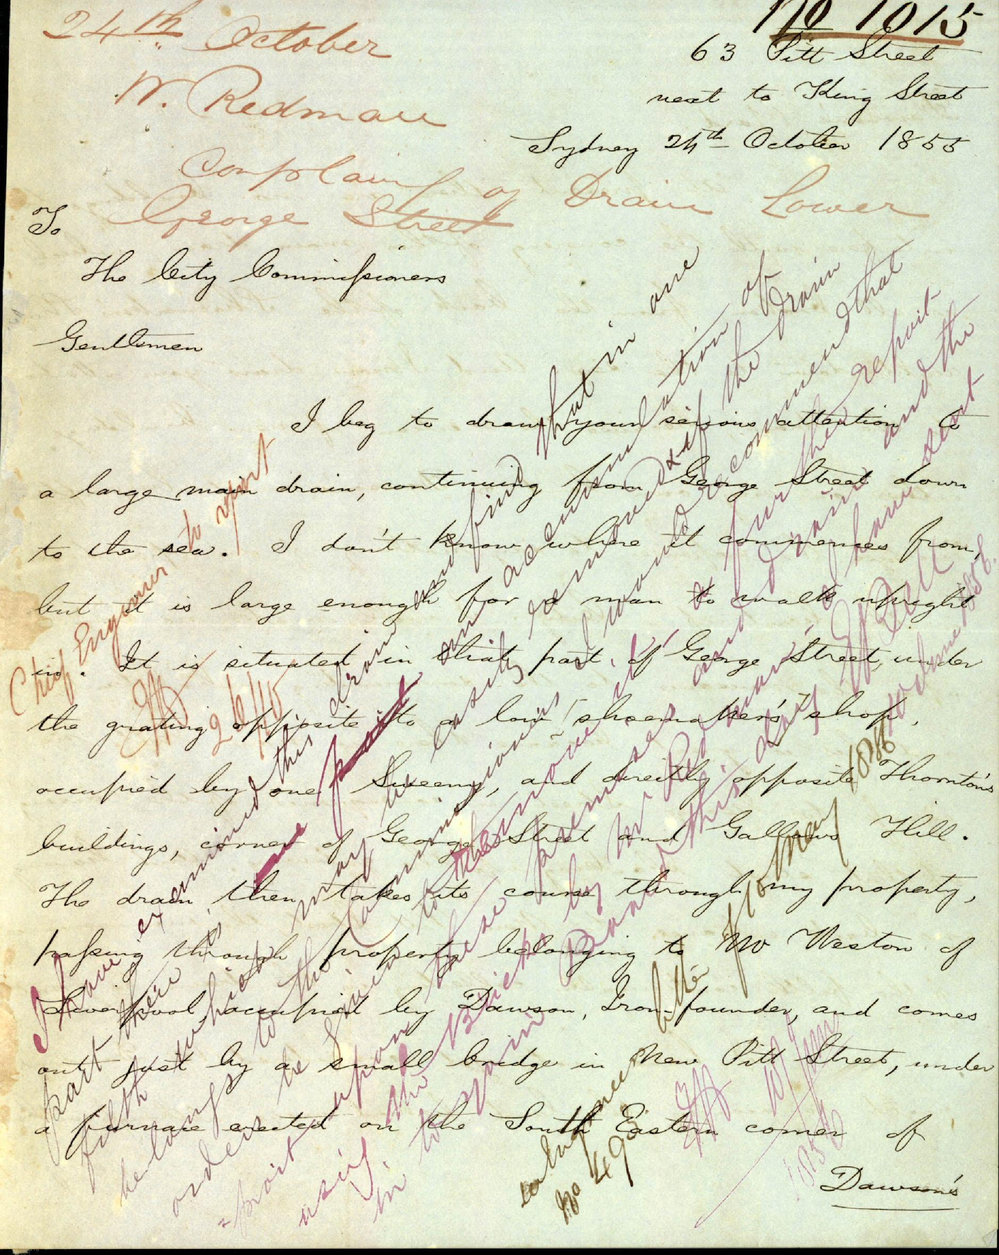 No 1015
24th October
W. Redman
Complains of Drain Lower
George Street
63 Pitt Street
next to King Street
Sydney 24th October 1855
To
The City Commissioners
Gentlemen
I beg to draw your serious attention to
a large main drain, continuing from George Street down
to the sea. I don't know where it commences from,
but it is large enough for a man to walk upright
in. It is situated in that part of George Street, under
the grating opposite to a low shoemaker's shop,
occupied by one Sweeny, and directly opposite Thornton's
buildings, corner of George Street and Gallows Hill.
The drain then takes its course through my property,
passing through property belonging to Mr Weston of
Liverpool occupied by Dawson, Iron-founder, and comes
out just by a small bridge in New Pitt Street, under
a furnace erected on the South Eastern corner of
Dawson's
Chief Engineer to report
I have examined this drain and find that in one
part there is an accumulation of
filth which may be easily removed & if the drain
belongs to the Commissioners I would recommend that
order be given to remove it & further report
upon these premises and drain and the
using the Bricks by Mr Redman
in to
Board this day
W Bell
1856
letter of 10 May 1856
No 49